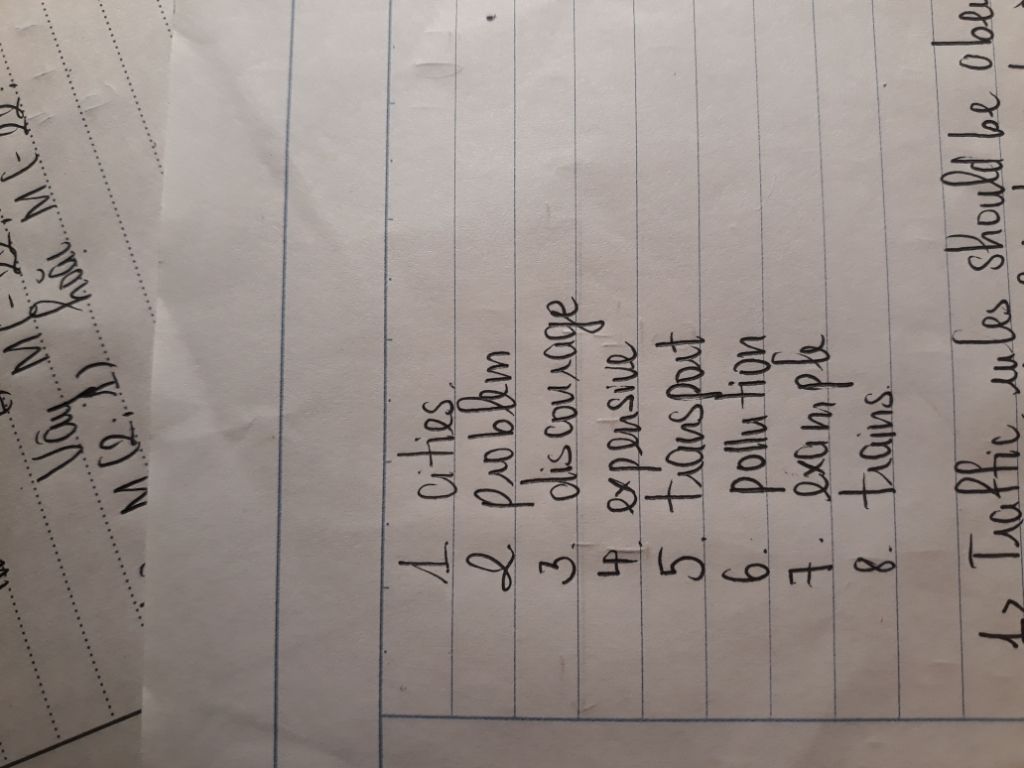 M(-22;
Vậy hoặc M(-22.
M(2;1)
1. cities.
2 problem
3. discourage
4. expensive
5. transport
6. pollution
7. example
8. trains.
1> Traffic rules should be